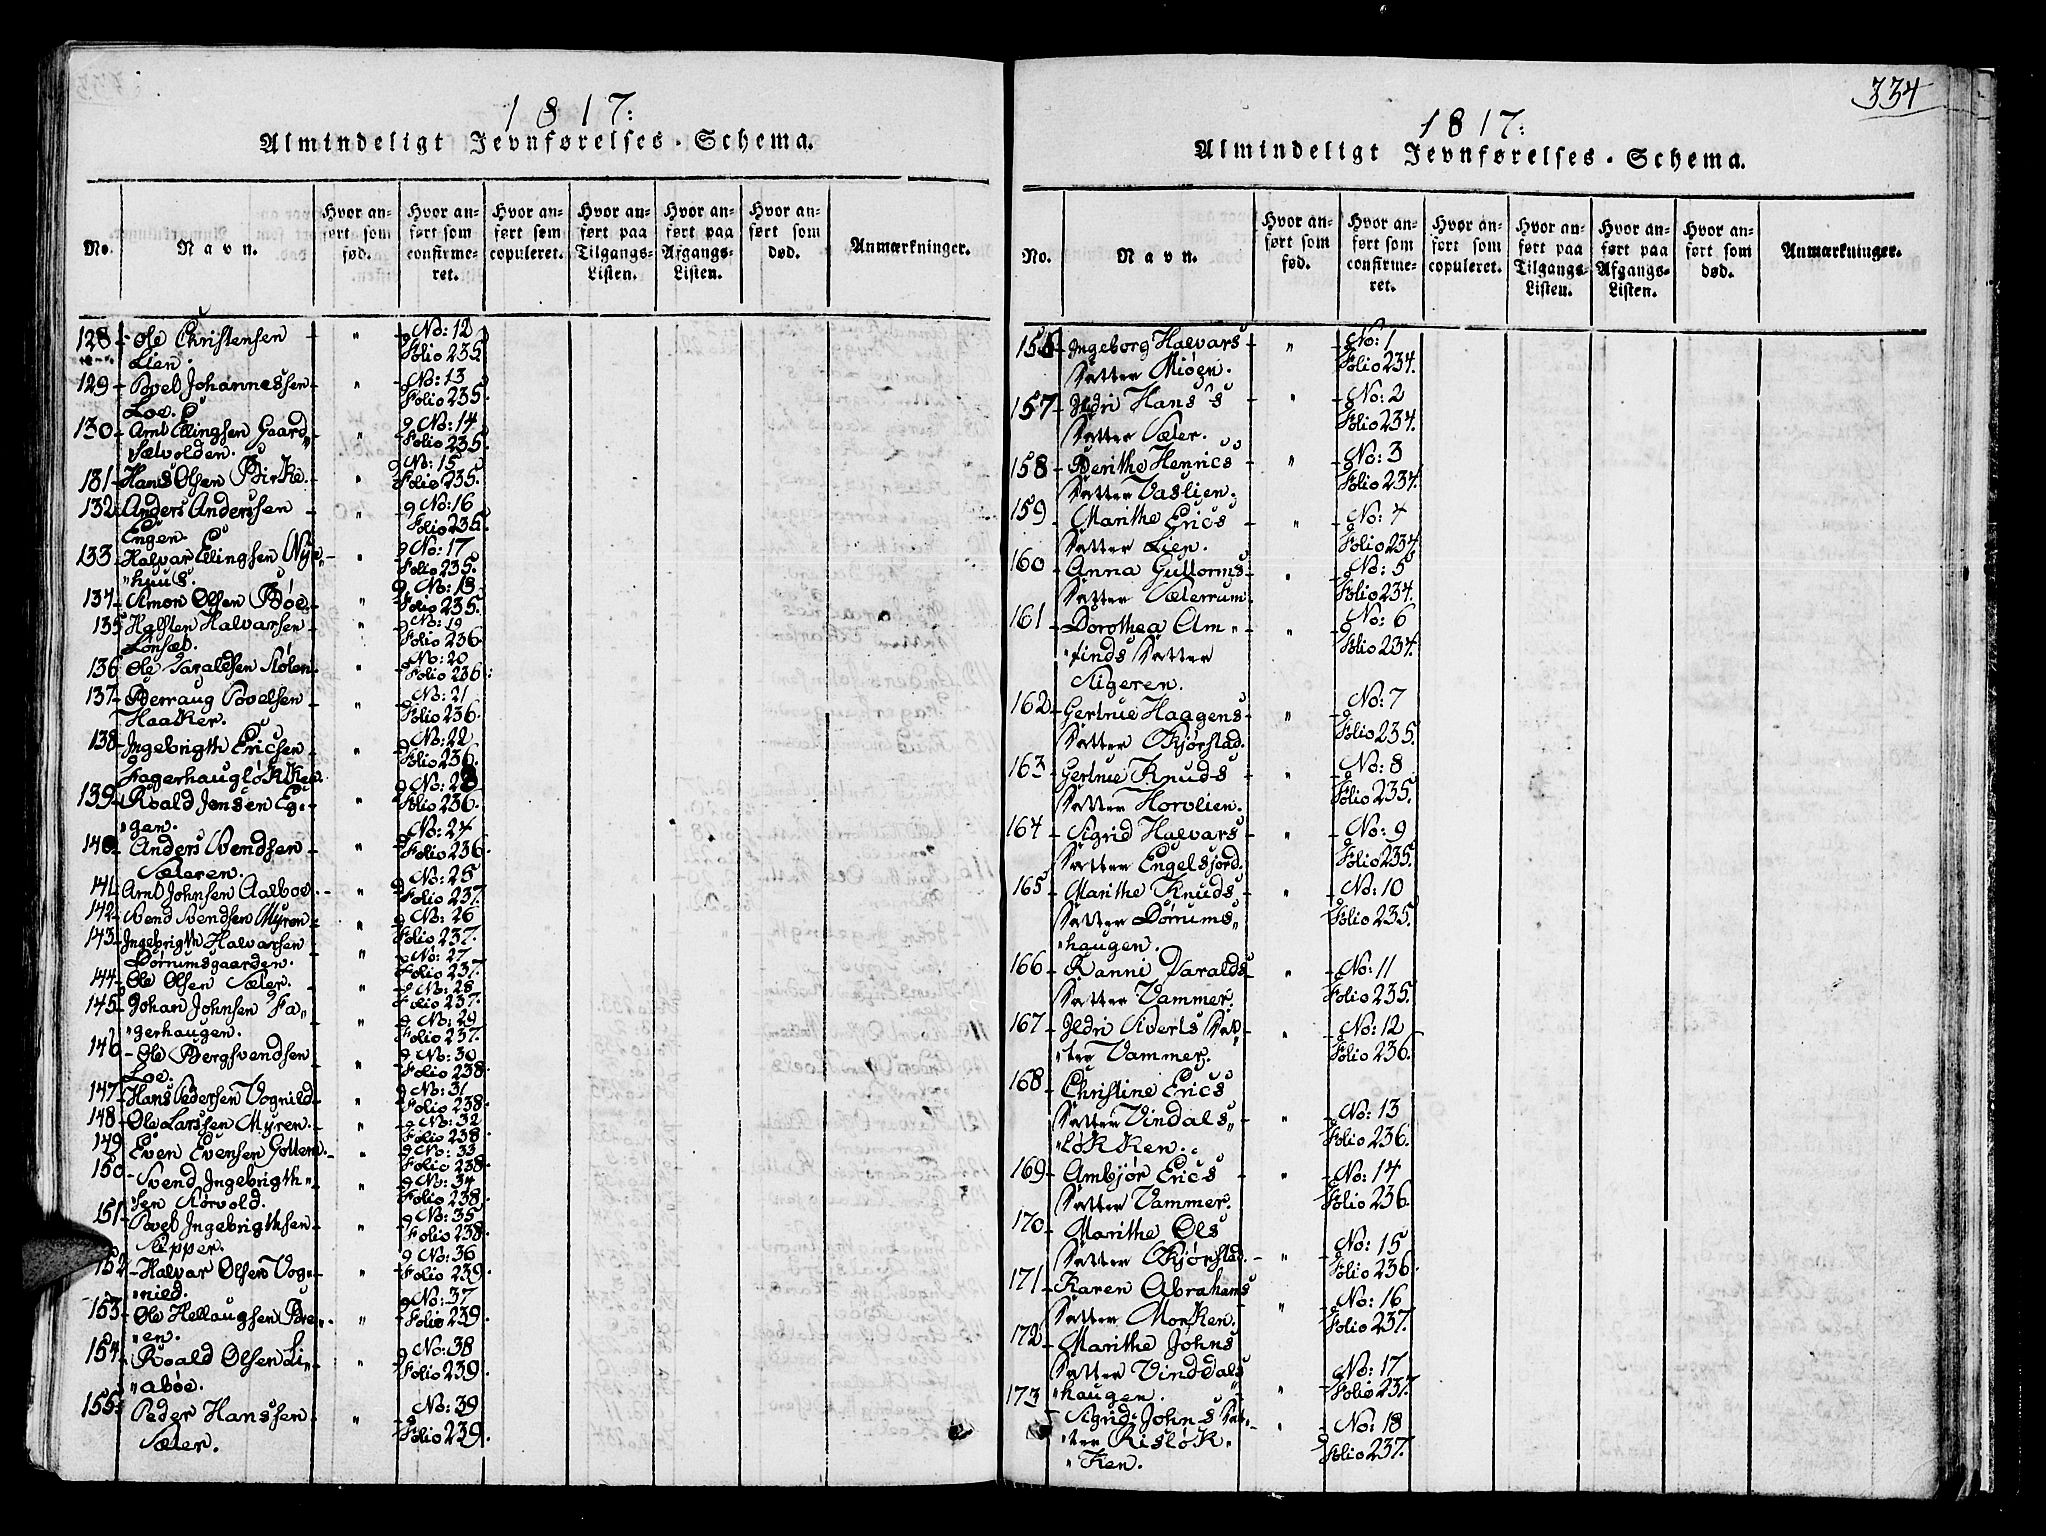 1817:
Almindeligt Jevnførelses-Schema.
No. Navn. Hvor anført som fød. Hvor anført som confirmeret. Hvor anført som copuleret. Hvor anført paa Tilgangs-Listen. Hvor anført paa Afgangs-Listen. Hvor anført som død. Anmærkninger.
128 Ole Christensen " No: 12
Lien. Folio 235
129 Povel Johannessen " No: 13
Loe. Folio 235.
130 Arnt Ellingsen Gaard= " No: 14
"sætvolden. Folio 235.
131 Hans Olsen Birke. " No: 15
Folio 235.
132 Anders Anderssen " No: 16
Engen. Folio 235.
133 Halvar Ellingsen Nye= " No: 17
"huus. Folio 235.
134 Simon Olsen Bøe " No: 18
Folio 235.
135 Halsten Halvarsen " No: 19
Lønset. Folio 236.
136 Ole Taraldsen Stølen " No: 20
Folio 236:
137 Berraug Povelsen " No: 21
Haaker. Folio 236.
138 Ingebrigth Ericsen " No: 22
Fagerhaugløkken. Folio 236.
139 Roald Jonsen Eg= " No: 23
"gen. Folio 236.
140 Anders Svendsen " No: 24
Sæteren. Folio 236.
141 Arnt Johnsen Aalboe. " No: 25
Folio 237.
142 Svend Svendsen Myren " No: 26
Folio 237.
143 Ingebrigth Halvarsen " No: 27
Dørrumsgaarden. Folio 237.
144 Ole Olsen Sæter. " No: 28
Folio 237.
145 Johan Johnsen Fa= " No: 29
"gerhaugen. Folio 237.
146 Ole Bergsvendsen " No: 30
Loe. Folio 238.
147 Hans Pedersen Vognild " No: 31
Folio 238.
148 Ole Larssen Myren. " No: 32
Folio 238.
149 Even Evensen Gottem. " No: 33
Folio 238.
150 Svend Ingebrigth= " No: 34
"sen Størvold. Folio 238.
151 Povel Ingebrigthsen " No: 35
Slipper. Folio 238.
152 Halvar Olsen Vog= " No: 36
"nild. Folio 239.
153 Ole Hellaugsen Bre= " No: 37
"en. Folio 239.
154 Roald Olsen Li= " No: 38
"abøe. Folio 239.
155 Peder Hanssen " No: 39
Sæter. Folio 239.
334
1817:
Almindeligt Jevnførelses-Schema.
No. Navn. Hvor anført som fød. Hvor anført som confirmeret. Hvor anført som copuleret. Hvor anført paa Tilgangs-Listen. Hvor anført paa Afgangs-Listen. Hvor anført som død. Anmærkninger.
156 Ingeborg Halvars " No: 1
Datter Miøen. Folio 234.
157 Ildri Hans's " No: 2
Datter Sæter. Folio 234.
158 Berithe Henrics " No: 3
Datter Vaslien. Folio 234.
159 Marithe Erics " No: 4
Datter Lien. Folio 234.
160 Anna Guttorms " No: 5
Datter Sæterrum. Folio 234.
161 Dorothea Am= " No: 6
"finds Datter Folio 234.
Stigeren.
162 Gertrue Haagens " No: 7
Datter Skjørstad. Folio 235.
163 Gertrue Knuds " No: 8
Datter Horvlien. Folio 235.
164 Sigrid Halvars " No: 9
Datter Engelsjord. Folio 235.
165 Marithe Knuds " No: 10
Datter Dørrums= Folio 235.
"haugen.
166 Ranni Taralds " No: 11
Datter Vammer. Folio 235.
167 Ildri Siverts Dat= " No: 12
"ter Vammer. Folio 236.
168 Christine Erics
Datter Vindals= " No: 13
"løkken. Folio 236.
169 Ambjør Erics " No: 14
Datter Vammer. Folio 236.
170 Marithe Ols No: 15
Datter Skjørstad. " Folio 236.
171 Karen Abrahams No: 16
Datter Morken. " Folio 237.
172 Marithe Johns
Datter Vinddals No: 17
"haugen. " Folio 237.
173 Sigrid Johns Dat= " No: 18
"ter Risløk= Folio 237.
"ken.